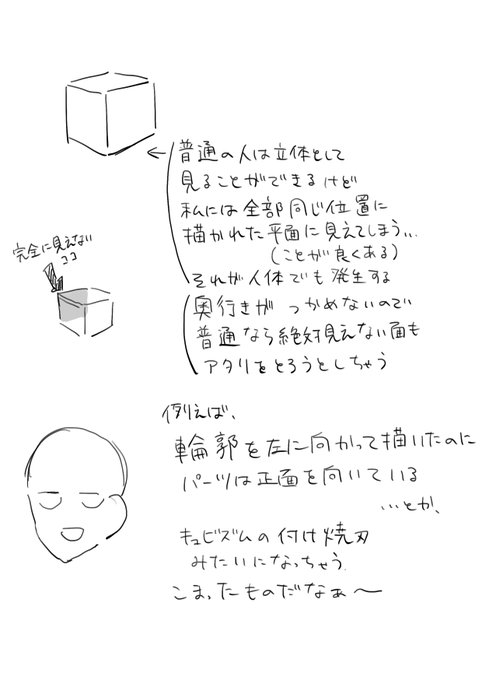 普通の人は立体として
見ることができるけど
私には全部同じ位置に
描かれた平面に見えてしまう…
(ことが良くある)
それが人体でも発生する
完全に見えない
ココ
奥行きがつかめないので
普通なら絶対見えない面も
アタリをとろうとしちゃう
例えば、
輪郭を左に向かって描いたのに
パーツは正面を向いている
…とか、
キュビズムの付け焼刃
みたいになっちゃう
こまったものだなぁ〜